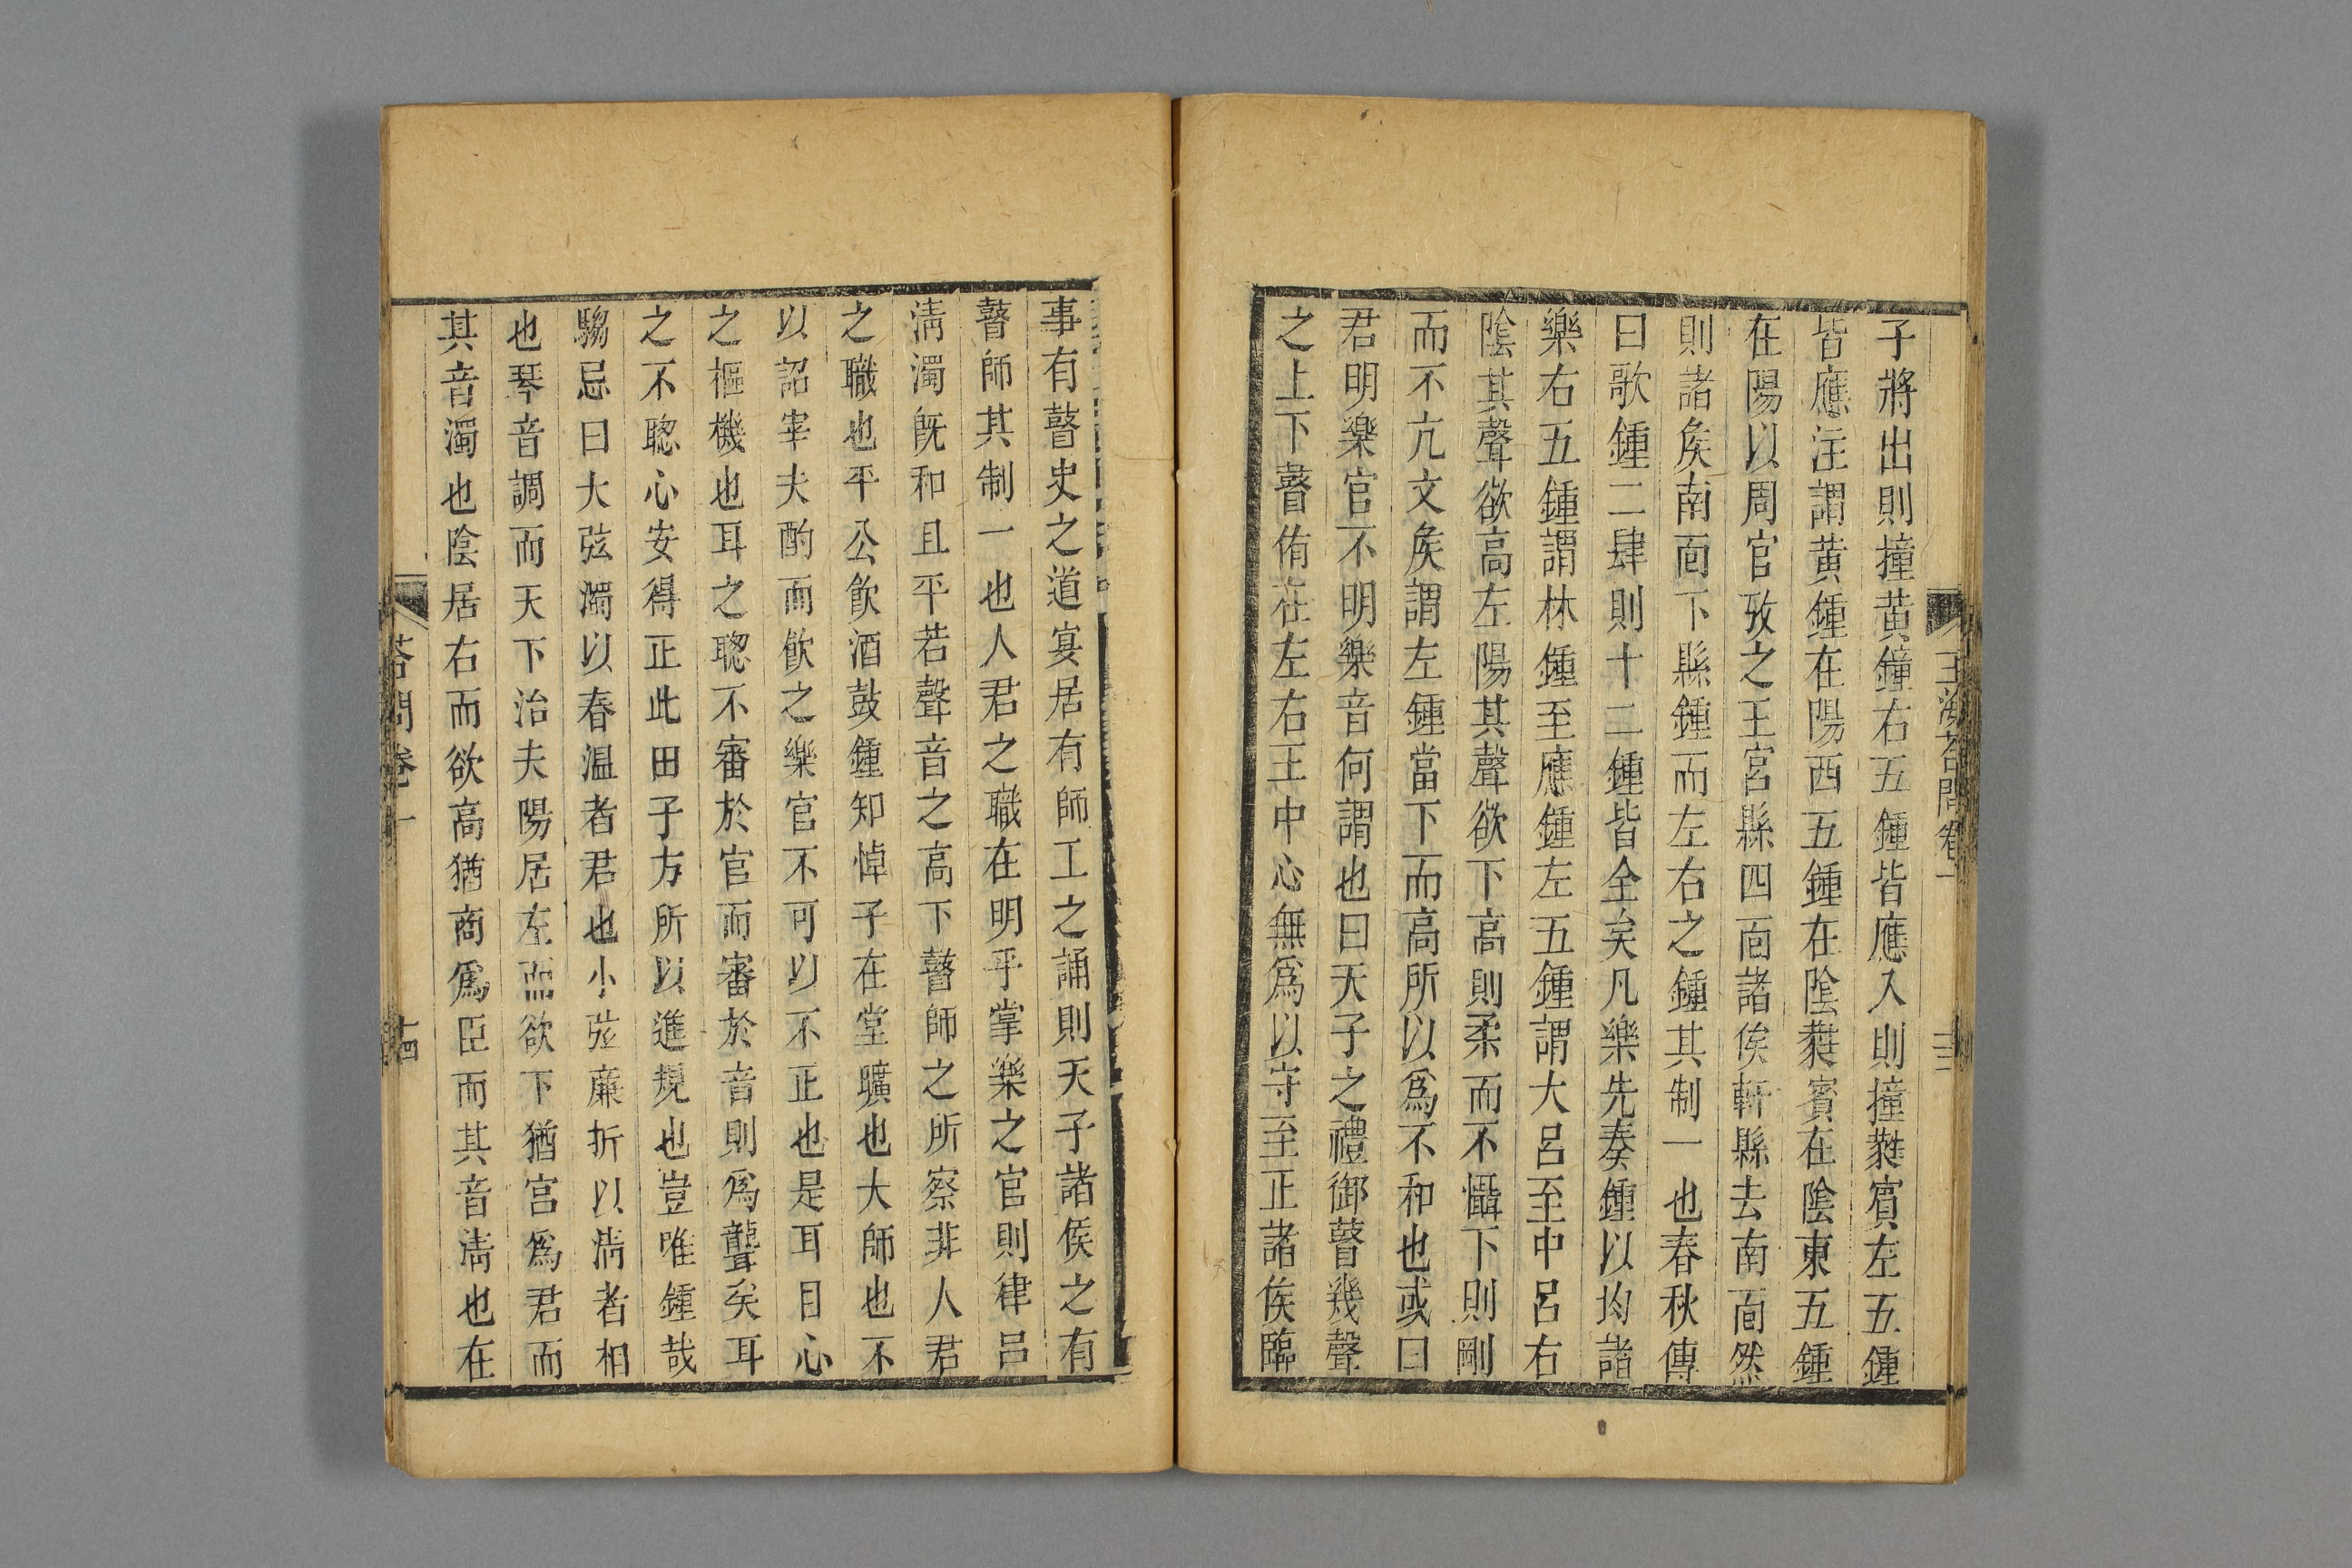 子將出則撞黄鐘右五鍾皆應入則撞蕤賓左五鍾
皆應注謂黄鍾在陽西五鍾在陰蕤賓在陰東五鍾
在陽以周官攷之王宮縣四面諸侯軒縣去南面然
則諸矦南面下縣鍾而左右之鍾其制一也春秋傳
曰歌鍾二肆則十二鍾皆全矣凡樂先奏鍾以均諸
樂右五鍾謂林鍾至應鍾左五鍾謂大呂至中呂右
陰其聲欲高左陽其聲欲下高則柔而不懾下則剛
而不亢文矦謂左鍾當下而高所以爲不和也或曰
君明樂官不明樂音何謂也曰天子之禮御瞽幾聲
之上下瞽侑在左右王中心無爲以守至正諸侯臨
事有瞽史之道宴居有師工之誦則天子諸侯之有
瞽師其制一也人君之職在明乎掌樂之官則律呂
淸濁旣和且平若聲音之高下瞽師之所察非人君
之職也平公飮酒鼓鍾知悼子在堂曠也大師也不
以詔宰夫酌而飮之樂官不可以不正也是耳目心
之樞機也耳之聰不審於官而審於音則爲聾矣耳
之不聰心安得正此田子方所以進規也豈唯鍾哉
騶忌曰大弦濁以春温者君也小弦廉折以淸者相
也琴音調而天下治夫陽居左而欲下猶宮爲君而
其音濁也陰居右而欲高猶商爲臣而其音淸也在
答問卷一
十四